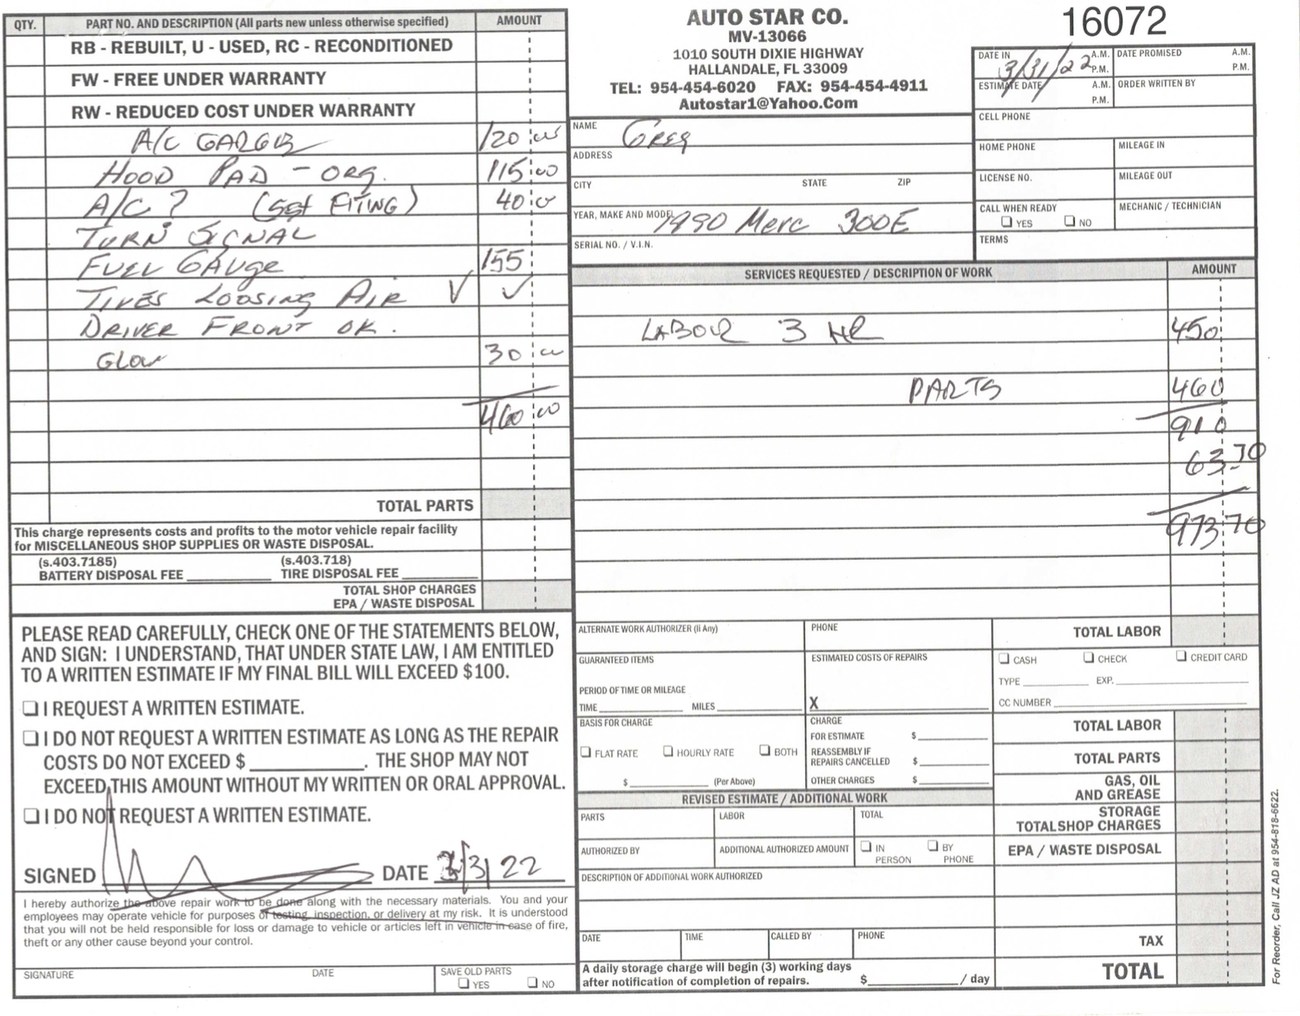 QTY. PART NO. AND DESCRIPTION (All parts new unless otherwise specified) AMOUNT
RB - REBUILT, U - USED, RC - RECONDITIONED
FW - FREE UNDER WARRANTY
RW - REDUCED COST UNDER WARRANTY
A/C 120 00
HOOD PAD - ORG. 115 00
A/C ? (SET FITING) 40 00
TURN SIGNAL
FUEL GAUGE 155
TIRES LOOSING AIR √ √
DRIVER FRONT OK.
GLOW 30 00
460 00
TOTAL PARTS
This charge represents costs and profits to the motor vehicle repair facility
for MISCELLANEOUS SHOP SUPPLIES OR WASTE DISPOSAL.
(s.403.7185) (s.403.718)
BATTERY DISPOSAL FEE TIRE DISPOSAL FEE
TOTAL SHOP CHARGES
EPA / WASTE DISPOSAL
PLEASE READ CAREFULLY, CHECK ONE OF THE STATEMENTS BELOW,
AND SIGN: I UNDERSTAND, THAT UNDER STATE LAW, I AM ENTITLED
TO A WRITTEN ESTIMATE IF MY FINAL BILL WILL EXCEED $100.
❏ I REQUEST A WRITTEN ESTIMATE.
❏ I DO NOT REQUEST A WRITTEN ESTIMATE AS LONG AS THE REPAIR
COSTS DO NOT EXCEED $ ____________. THE SHOP MAY NOT
EXCEED THIS AMOUNT WITHOUT MY WRITTEN OR ORAL APPROVAL.
❏ I DO NOT REQUEST A WRITTEN ESTIMATE.
SIGNED DATE 3/31/22
I hereby authorize the above repair work to be done along with the necessary materials. You and your
employees may operate vehicle for purposes of testing, inspection, or delivery at my risk. It is understood
that you will not be held responsible for loss or damage to vehicle or articles left in vehicle in case of fire,
theft or any other cause beyond your control.
SIGNATURE DATE SAVE OLD PARTS
❏ YES ❏ NO
AUTO STAR CO.
MV-13066
1010 SOUTH DIXIE HIGHWAY
HALLANDALE, FL 33009
TEL: 954-454-6020 FAX: 954-454-4911
Autostar1@Yahoo.Com
16072
DATE IN 3/31/22 A.M. P.M. DATE PROMISED A.M. P.M.
ESTIMATE DATE A.M. P.M. ORDER WRITTEN BY
CELL PHONE
HOME PHONE MILEAGE IN
LICENSE NO. MILEAGE OUT
CALL WHEN READY MECHANIC / TECHNICIAN
❏ YES ❏ NO
TERMS
NAME Greg
ADDRESS
CITY STATE ZIP
YEAR, MAKE AND MODEL 1990 Merc 300E
SERIAL NO. / V.I.N.
SERVICES REQUESTED / DESCRIPTION OF WORK AMOUNT
LABOUR 3 HR 450
PARTS 460
910
63.70
973.70
TOTAL LABOR
ALTERNATE WORK AUTHORIZER (ii Any) PHONE
GUARANTEED ITEMS ESTIMATED COSTS OF REPAIRS
❏ CASH ❏ CHECK ❏ CREDIT CARD
PERIOD OF TIME OR MILEAGE
TYPE EXP.
TIME MILES X
CC NUMBER
BASIS FOR CHARGE
❏ FLAT RATE ❏ HOURLY RATE ❏ BOTH
$ (Per Above)
CHARGE
FOR ESTIMATE $
REASSEMBLY IF
REPAIRS CANCELLED $
OTHER CHARGES $
TOTAL LABOR
TOTAL PARTS
GAS, OIL
AND GREASE
STORAGE
TOTALSHOP CHARGES
EPA / WASTE DISPOSAL
REVISED ESTIMATE / ADDITIONAL WORK
PARTS LABOR TOTAL
AUTHORIZED BY ADDITIONAL AUTHORIZED AMOUNT ❏ IN PERSON ❏ BY PHONE
DESCRIPTION OF ADDITIONAL WORK AUTHORIZED
DATE TIME CALLED BY PHONE
TAX
A daily storage charge will begin (3) working days
after notification of completion of repairs. $ / day
TOTAL
For Reorder, Call JZ AD at 954-818-6622.